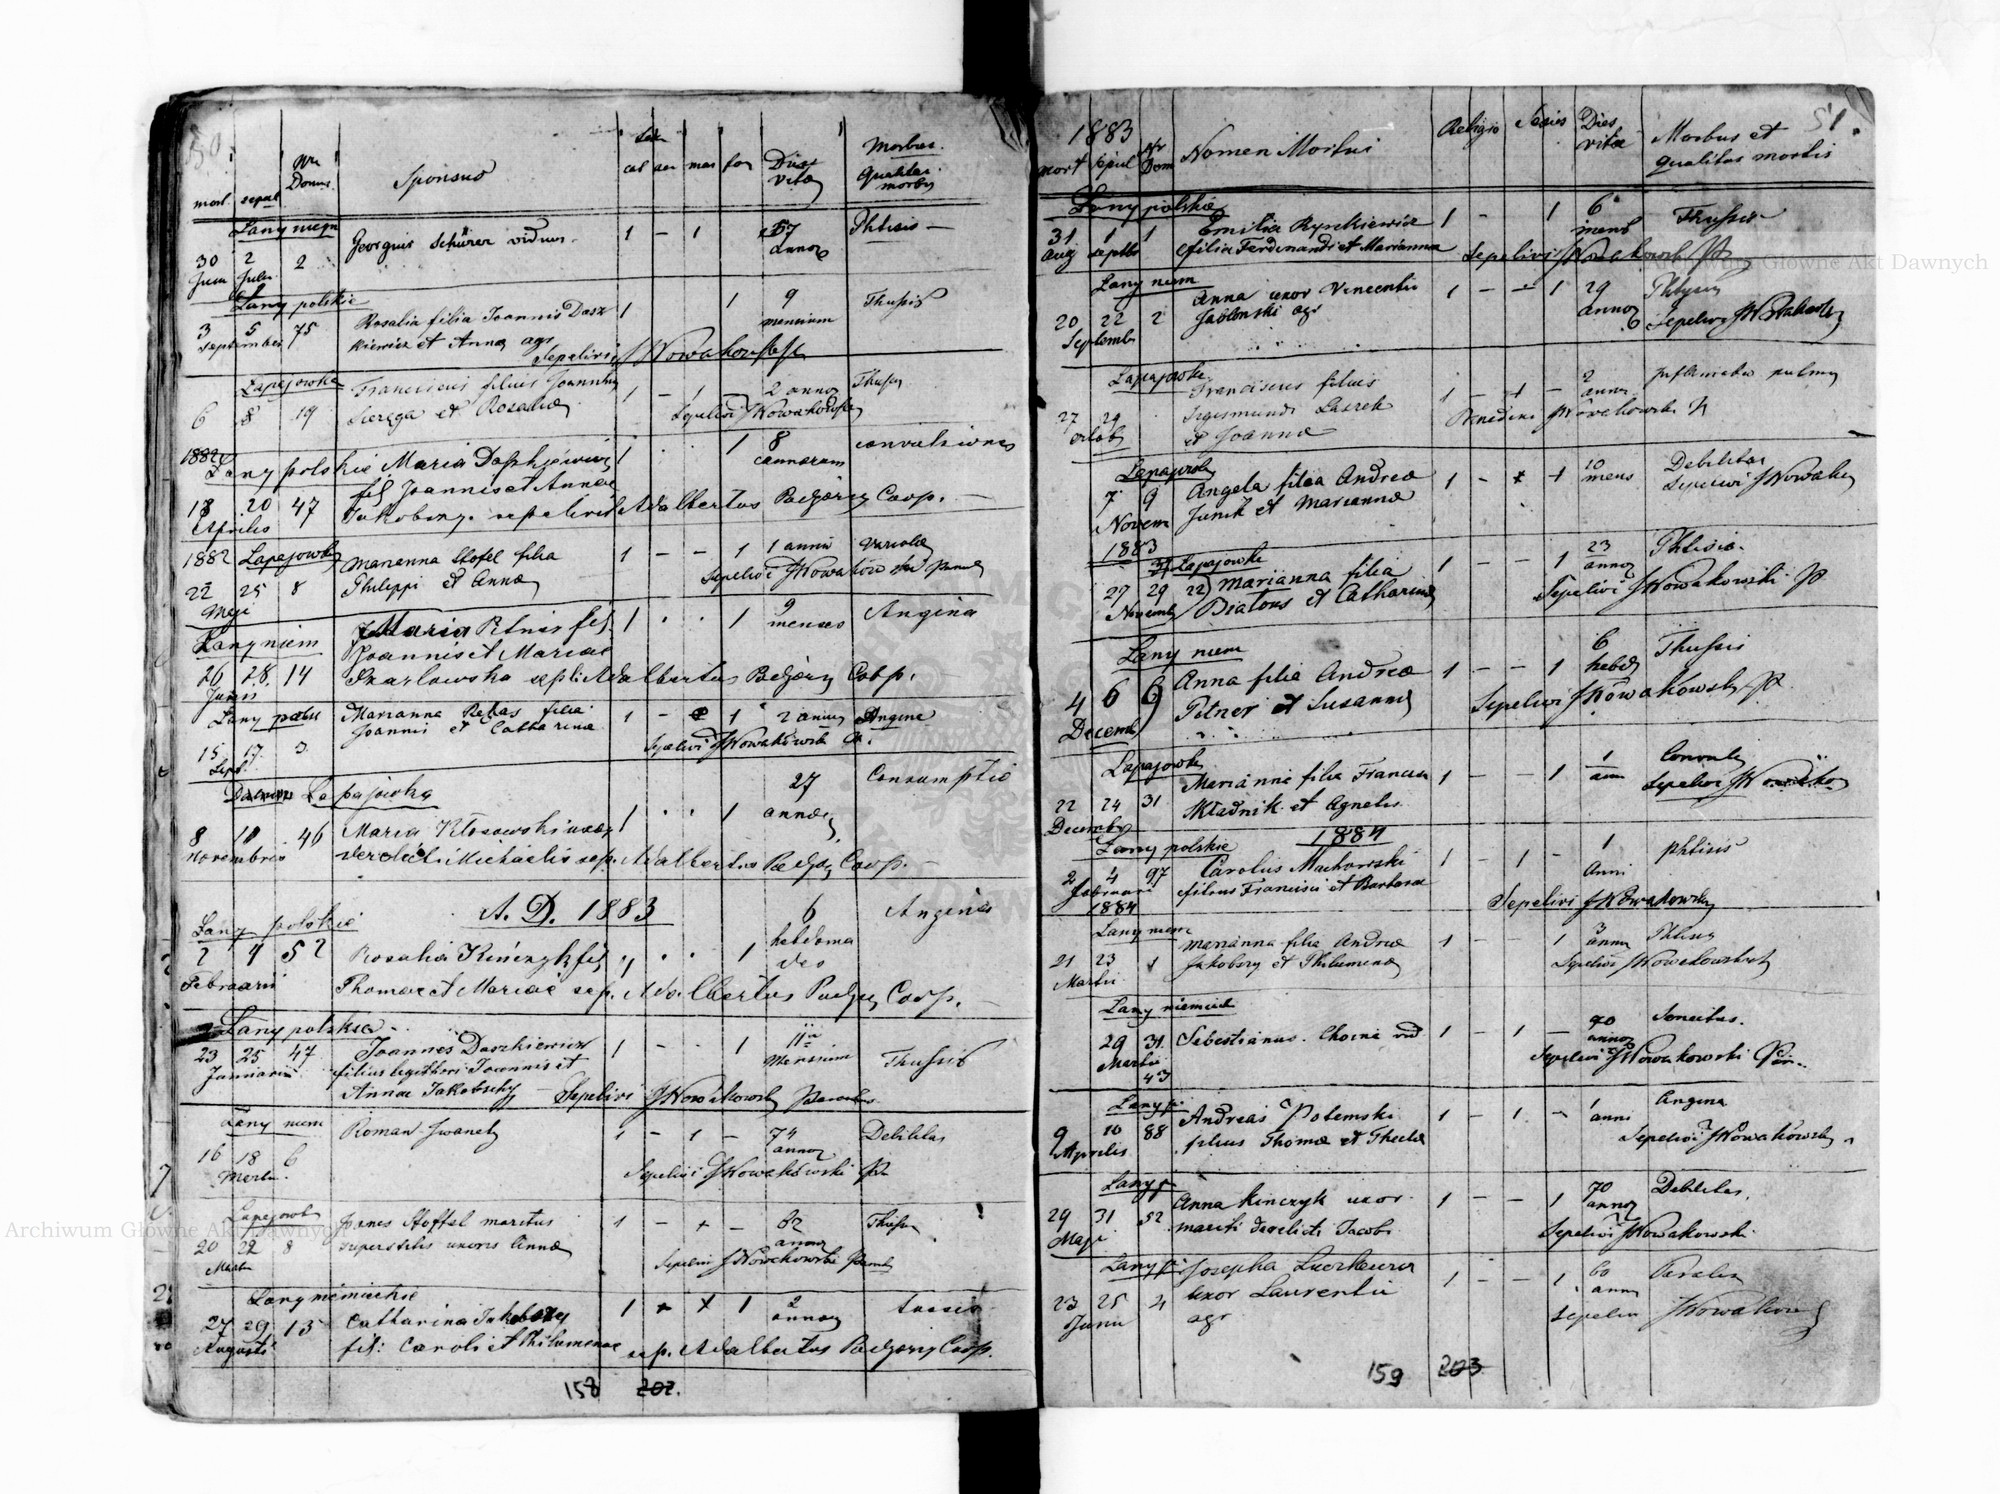 50.
Nru
Domus
Sponsus
cat mas fem
Dies
vitæ
Morbus
qualitas
morbi
mort sepult
Lany niem
Georgius Schürer viduus
1 - 1
57
annor
Phtisis
30 2 2
Juni Julii
Lany polskie
3 5 75
September
Rosalia filia Joannis Dasz
kiewicz et Anna agr
1 1
9
mensium
Thussis
Sepelivi J Nowakowski
Łapajowka
6 8 19
Franciscus filius Joannis
Szeręga et Rosaliæ
1 - 1
2 annor
Thussis
Sepelivi J Nowakowski
1882
Lany polskie Maria Daszkiewicz
fil Joannis et Annae
Jakobszy. sepelivit Adalbertus Podgórzy Coop.
18 20 47
Aprilis
1 1
8
annorum
convulsiones
1882 Łapajowka
22 25 8
Maji
Marianna Stofel filia
Philippi et Annæ
1 - - 1
1 anni
Variola
Sepelivi J Nowakowski
Lany niem
26 28. 14
Junii
Maria Pitner fil.
Joannis et Mariae
Szarłowska sepli Adalbertus Podgórzy Coop.
1 . . 1
9
menses
Angina
Lany
15 17 3
Sept.
Marianna Rekas filia
Joannis et Catharina
1 - 1
2 annor
Angina
Sepelivi J Nowakowski
Łapajówka
8 10 46
Novembris
Maria Kłosowski uxor
derelicti Michaelis sep. Adalbertus Podgórzy Coop.
1 . . 1
27
annor
Consumptio
A. D. 1883
Lany polskie
2 4 52
Februarii
Rosalia Kinczyk fil
Thomae et Mariae sep. Adalbertus Podgórzy Coop.
1 . . 1
6
hebdoma
des
Angina
Lany polskie
23 25 47
Januarii
Joannes Daszkiewicz
filius legithimi Joannis et
Annae Jakobschy - Sepelivi J Nowakowski
1 - - 1
11
Mensium
Thussis
Lany niem
16 18 6
Martii.
Roman Iwanek
1 - 1 -
74
annor
Debilitas
Sepelivi J Nowakowski
Łapajowka
20 22 8
Martii
Joanes Stoffel maritus
superstitis uxoris Annæ
1 - + -
62
annor
Thussis
Sepelivi J Nowakowski
Lany niemieckie
27 29 13
Augusti
Catharina Jakobszy
fil: Caroli et Philumenae
1 + + 1
2
annor
tussis
sep. Adalbertus Podgórzy Coop.
158 202.
51.
1883
mort sepul
Nr
Dom
Nomen Mortui
Religio
Sexus
Dies
vitæ
Morbus et
qualitas mortis
Lany polskie
31 1 1
Aug Septbr
Emilia Ryszkiewicz
filia Ferdinandi et Marianna
1 - 1
6
mens
Thussis
Sepelivi J Nowakowski
Lany niem
20 22 2
Septembr
Anna uxor Vincentii
Jabłonski agr
1 - - 1
29
annor
Phtysis
Sepelivi J Nowakowski
Łapajowka
27 29
Octob
Franciscus filius
Sigismundi Laszek
et Joannæ
1 - 1 -
2
annor
inflamatio pulmon
J Nowakowski
Łapajowka
7 9
Novem
Angela filia Andreæ
Junik et Mariannæ
1 - 1
10
mens
Debilitas
Sepelivi J Nowakowski
1883
Łapajowka
27 29 22
Novembr
Marianna filia
et Catharina
1 - - 1
23
annor
Phtisis.
Sepelivi J Nowakowski
Lany niem
4 6 6
Decemb
Anna filia Andreæ
Pitner et Susannæ
1 - - 1
6
hebd
Thussis
Sepelivi J Nowakowski
Łapajowka
22 24 31
Decembr
Marianna filia Francisci
Kładnik et Agnetis
1 - - 1
1
ann
Convuls
Sepelivi J Nowakowski
Lany polskie 1884
2 4 97
Februarii
1884
Carolus Machowski
filius Francisci et Barbarae
1 - 1 -
1
Anni
phtisis
Sepelivi J Nowakowski
Lany niem
21 23 1
Martii
Marianna filia Andreæ
Jakobszy et Philumenæ
1 - - 1
3
annor
Phtisis
Sepelivi J Nowakowski
Lany niemieck
29 31
Martii
43
Sebestianus. Choina vid
1 - 1 -
70
annor
Senectus.
Sepelivi J Nowakowski Par.
Lany p.
9 10 88
Aprilis
Andreas Potemski
filius Thomæ et Theclæ
1 - 1. -
1
anni
Angina
Sepelivi J Nowakowski
Lany p
29 31 52
Maji
Anna Kinczyk uxor
mariti derelicti Jacobi
1 - - 1
70
annor
Debilitas.
Sepelivi J Nowakowski.
Lany p.
23 25 4
Junii
Josepha
uxor Laurentii
agr
1 - - 1
60
ann
Sepelivi J Nowakowski
159 203
Archiwum Główne Akt Dawnych
Archiwum Główne Akt Dawnych